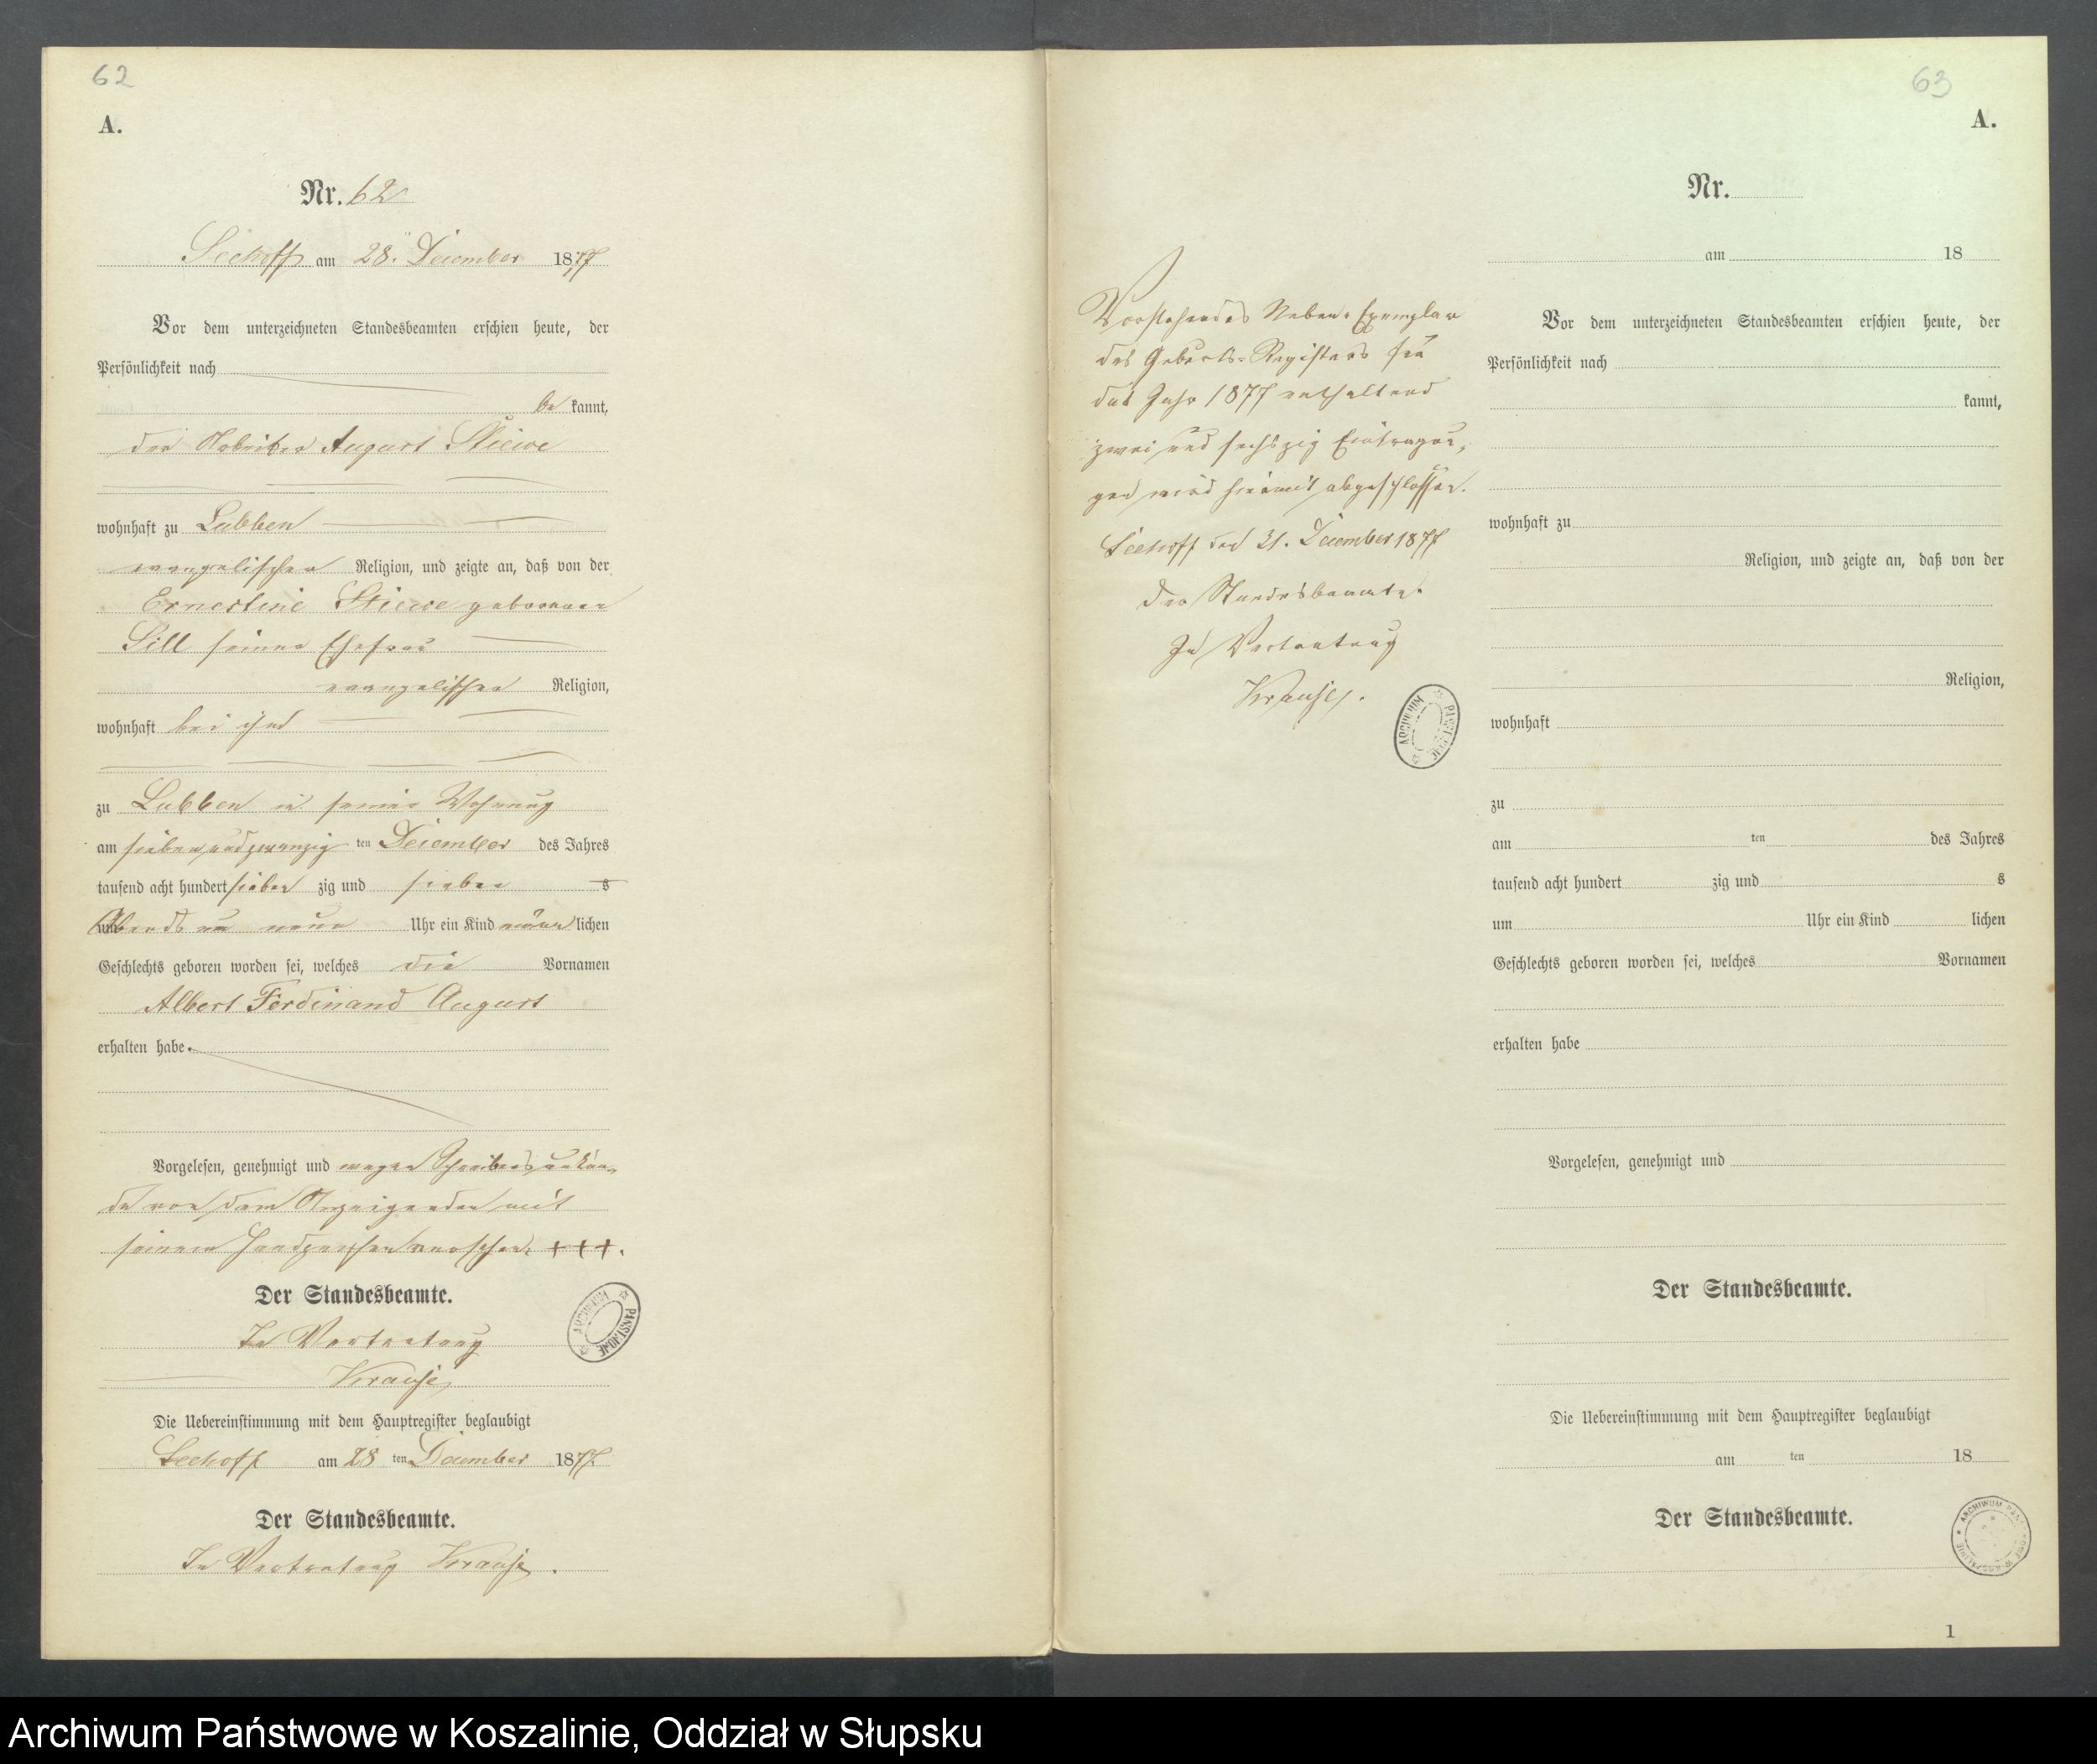 62
A.
Nr. 62
Seehoff am 28. December 1877
Vor dem unterzeichneten Standesbeamten erschien heute, der
Persönlichkeit nach
be kannt,
der Arbeiter August Stiewe
wohnhaft zu Lubben
evangelischer Religion, und zeigte an, daß von der
Ernestine Stiewe geborener
Sill seiner Ehefrau
evangelischer Religion,
wohnhaft bei ihm
zu Lubben in seiner Wohnung
am sieben und zwanzig ten December des Jahres
tausend acht hundert sieben zig und sieben s
Abends um neun Uhr ein Kind männ lichen
Geschlechts geboren worden sei, welches die Vornamen
Albert Ferdinand August
erhalten habe.
Vorgelesen, genehmigt und wegen Schreibensunkun-
de von dem Anzeigenden mit
seinem Handzeichen versehen. +++.
Der Standesbeamte.
In Vertretung
Krause
Die Uebereinstimmung mit dem Hauptregister beglaubigt
Seehoff am 28 ten December 1877.
Der Standesbeamte.
In Vertretung Krause.
ARCHIWUM PAŃSTWOWE
63
A.
Vorstehendes Neben-Exemplar
des Geburts-Registers für
das Jahr 1877 enthaltend
zwei und sechszig Eintragun-
gen wird hiermit abgeschlossen.
Seehoff den 31. December 1877
Der Standesbeamte.
In Vertretung
Krause.
ARCHIWUM PAŃSTWOWE
Nr.
am 18
Vor dem unterzeichneten Standesbeamten erschien heute, der
Persönlichkeit nach
kannt,
wohnhaft zu
Religion, und zeigte an, daß von der
Religion,
wohnhaft
zu
am ten des Jahres
tausend acht hundert zig und s
um Uhr ein Kind lichen
Geschlechts geboren worden sei, welches Vornamen
erhalten habe
Vorgelesen, genehmigt und
Der Standesbeamte.
Die Uebereinstimmung mit dem Hauptregister beglaubigt
am ten 18
Der Standesbeamte.
1
Archiwum Państwowe w Koszalinie, Oddział w Słupsku